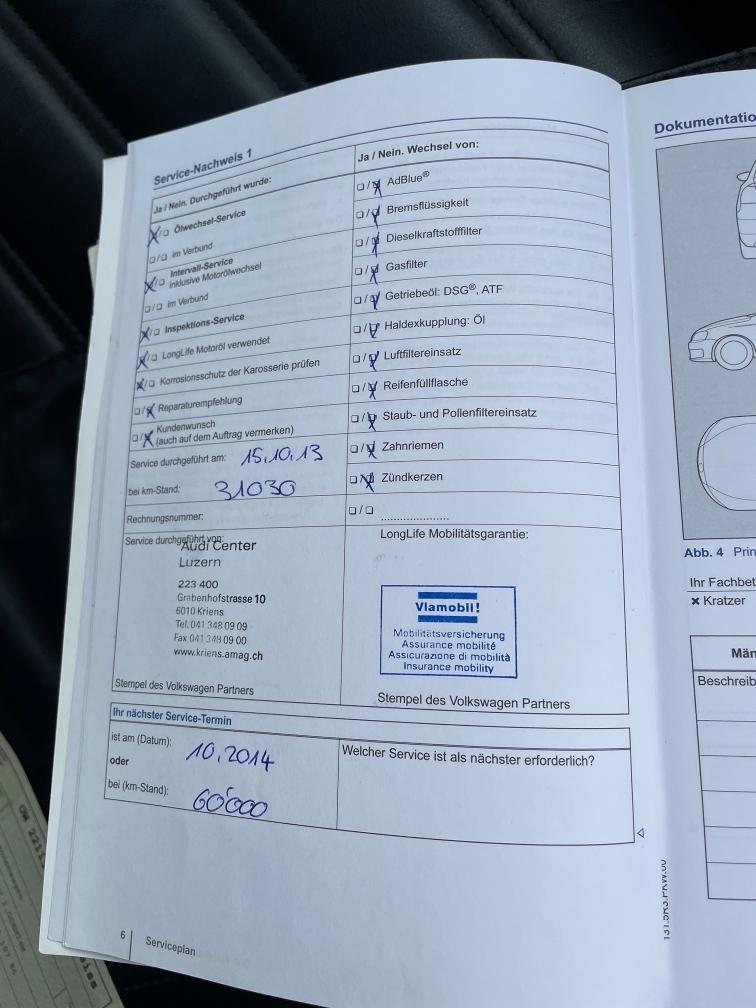 Service-Nachweis 1
Ja / Nein. Durchgeführt wurde:
Ölwechsel-Service
im Verbund
Intervall-Service
inklusive Motorölwechsel
im Verbund
Inspektions-Service
LongLife Motoröl verwendet
Korrosionsschutz der Karosserie prüfen
Reparaturempfehlung
Kundenwunsch
(auch auf dem Auftrag vermerken)
Service durchgeführt am: 15.10.13
bei km-Stand: 31030
Rechnungsnummer:
Service durchgeführt von:
Audi Center
Luzern
223 400
Grabenhofstrasse 10
6010 Kriens
Tel. 041 348 09 09
Fax 041 348 09 00
www.kriens.amag.ch
Stempel des Volkswagen Partners
Ja / Nein. Wechsel von:
AdBlue®
Bremsflüssigkeit
Dieselkraftstofffilter
Gasfilter
Getriebeöl: DSG®, ATF
Haldexkupplung: Öl
Luftfiltereinsatz
Reifenfüllflasche
Staub- und Pollenfiltereinsatz
Zahnriemen
Zündkerzen
....................
LongLife Mobilitätsgarantie:
Vlamobil!
Mobilitätsversicherung
Assurance mobilité
Assicurazione di mobilità
Insurance mobility
Stempel des Volkswagen Partners
Ihr nächster Service-Termin
ist am (Datum): 10.2014
oder
bei (km-Stand): 60'000
Welcher Service ist als nächster erforderlich?
6 Serviceplan
Dokumentatio
Abb. 4 Prin
Ihr Fachbet
× Kratzer
Män
Beschreib